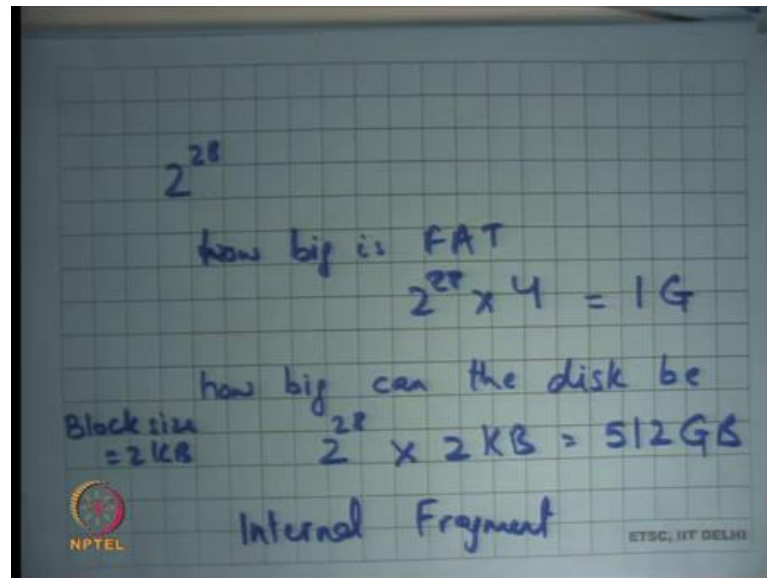 2^28
how big is FAT
2^28 x 4 = 1G
how big can the disk be
Block size
= 2KB
2^28 x 2KB = 512GB
Internal Fragment
NPTEL
ETSC, IIT DELHI